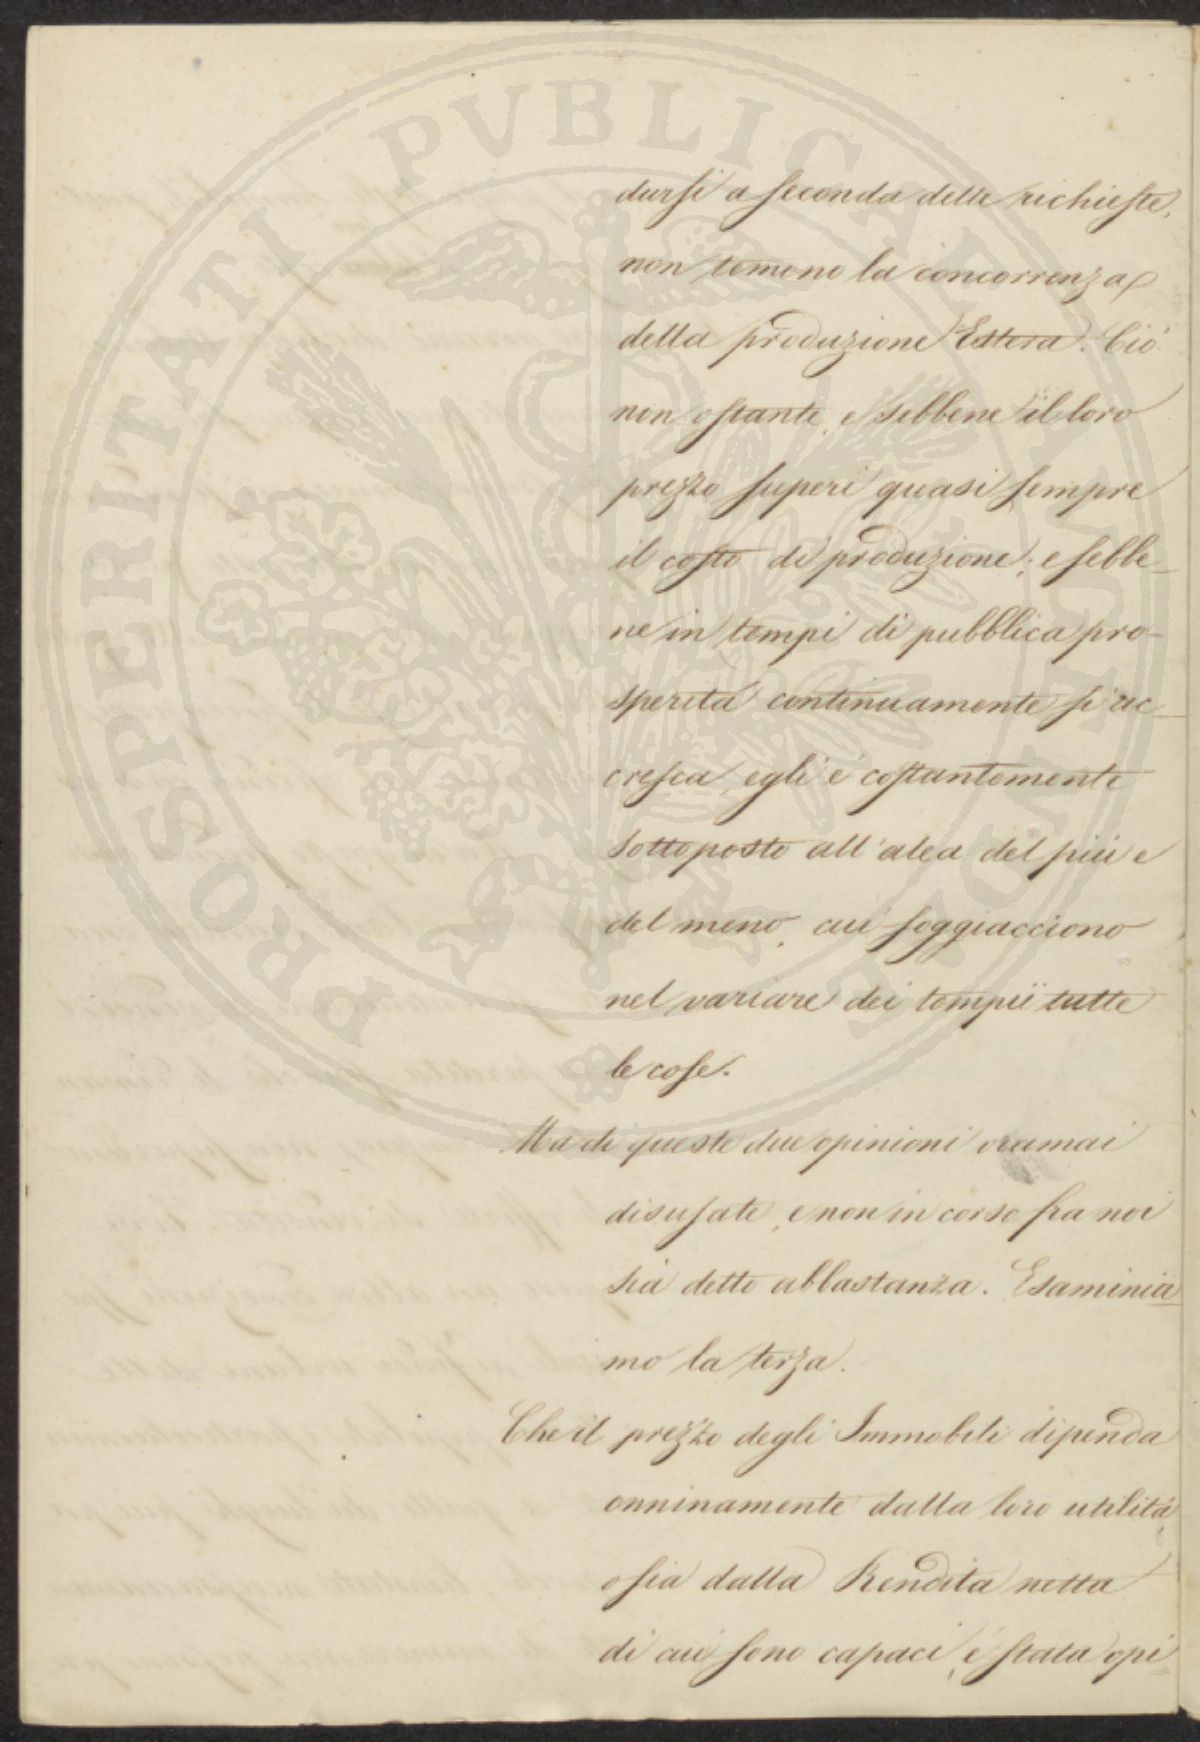 PROSPERITATI PVBLICAE AVGENDAE
dursi a seconda delle richieste,
non temono la concorrenza
della produzione Estera. Ciò
non ostante, e sebbene il loro
prezzo superi quasi sempre
il costo di produzione; e sebbe-
ne in tempi di pubblica pro-
sperità continuamente si ac-
cresca, egli è costantemente
sottoposto all'alea del più e
del meno, cui soggiacciono
nel variare dei tempii tutte
le cose.
Ma di queste due opinioni oramai
disusate, e non in corso fra noi
sia detto abbastanza. Esaminia
mo la terza.
Che il prezzo degli Immobili dipenda
onninamente dalla loro utilità,
ossia dalla Rendita netta
di cui sono capaci, è stata opi=